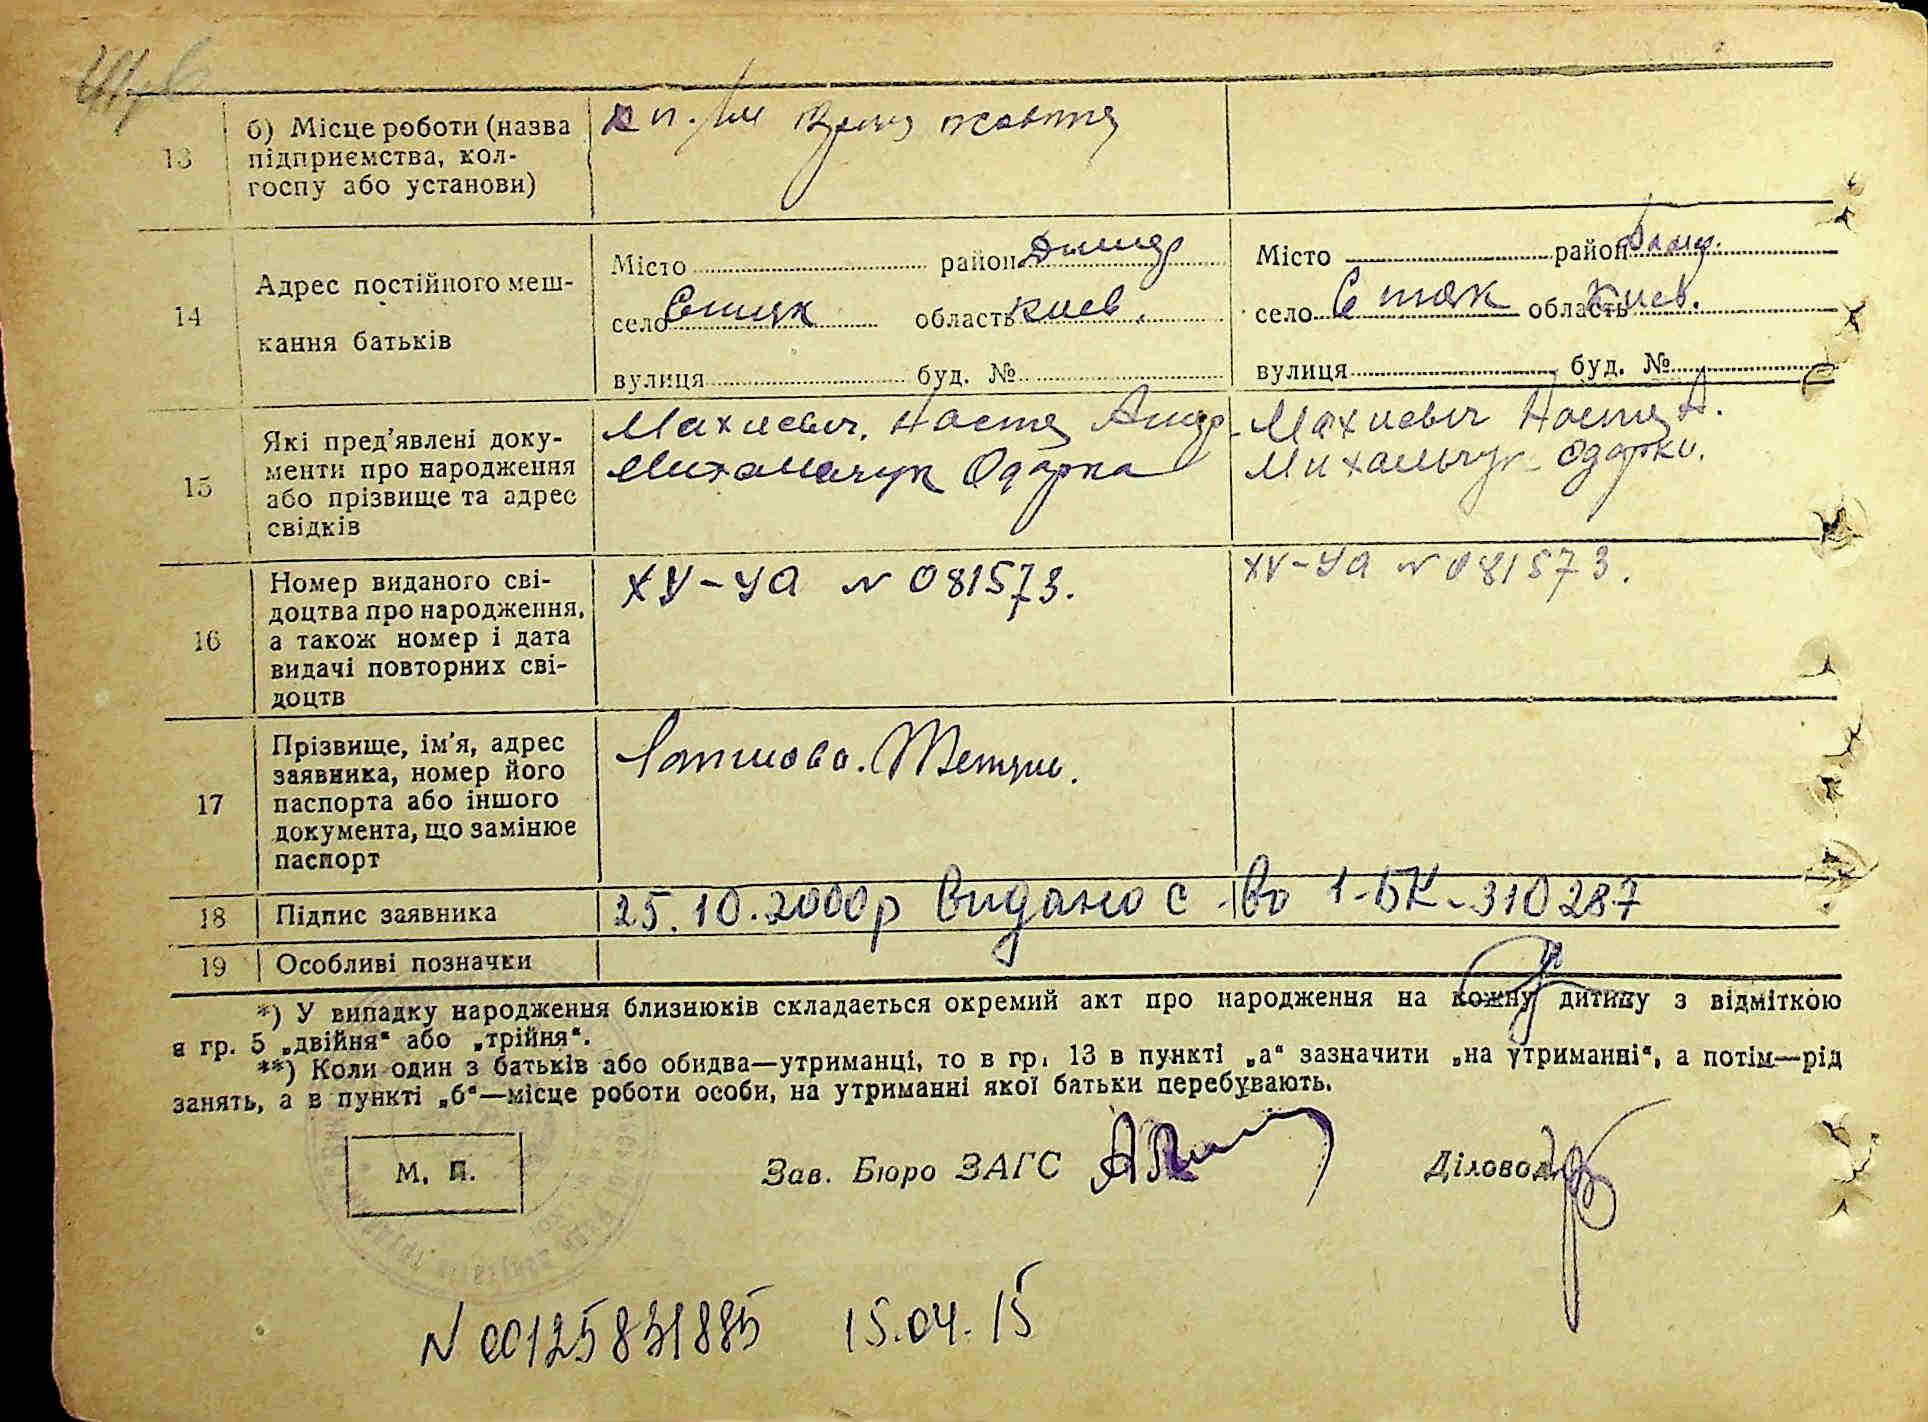 13 б) Місце роботи (назва
підприємства, кол-
госпу або установи)
14 Адрес постійного меш-
кання батьків
Місто район Димер
село Ситняк область Киев.
вулиця буд. №
Місто район Дымер.
село Ситняк область Киев.
вулиця буд. №
15 Які пред'явлені доку-
менти про народження
або прізвище та адрес
свідків
Махневич. Настя
Михальчук Одарка
Махневич Настя А.
Михальчук Одарки.
16 Номер виданого сві-
доцтва про народження,
а також номер і дата
видачі повторних сві-
доцтв
ХУ-УА N 081573.
XV-УА N 081573.
17 Прізвище, ім'я, адрес
заявника, номер його
паспорта або іншого
документа, що замінює
паспорт
18 Підпис заявника 25.10.2000р Видано с-во 1-БК-310287
19 Особливі позначки
*) У випадку народження близнюків складається окремий акт про народження на кожну дитину з відміткою
в гр. 5 „двійня“ або „трійня“.
**) Коли один з батьків або обидва—утриманці, то в гр. 13 в пункті „а“ зазначити „на утриманні“, а потім—рід
занять, а в пункті „б“—місце роботи особи, на утриманні якої батьки перебувають.
М. П. Зав. Бюро ЗАГС Діловод
N 00125831885 15.04.15